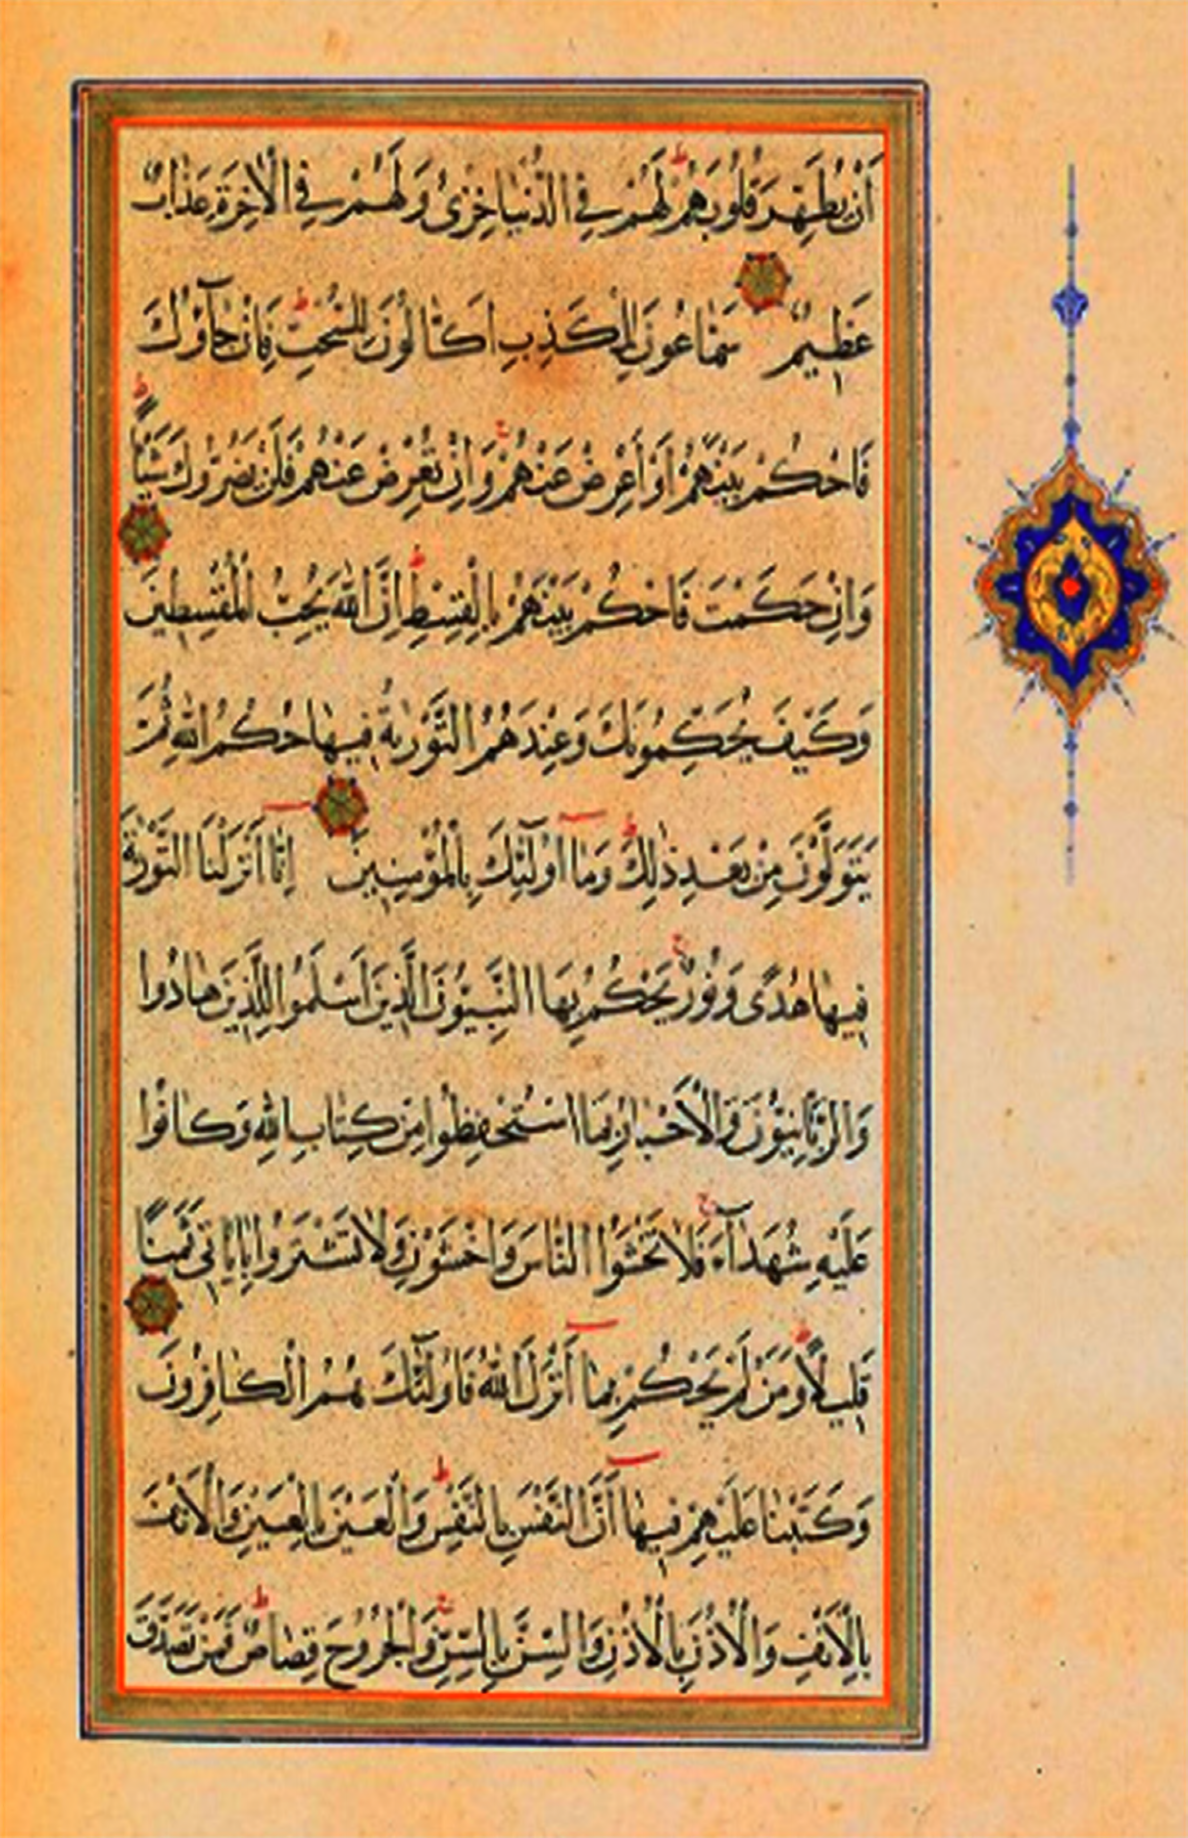 أَنْ يُطَهِّرَ قُلُوبَهُمْ ط لَهُمْ فِي الدُّنْيَا خِزْيٌ وَلَهُمْ فِي الْآخِرَةِ عَذَابٌ
عَظِيمٌ سَمَّاعُونَ لِلْكَذِبِ أَكَّالُونَ لِلسُّحْتِ ط فَإِنْ جَآؤُكَ
فَاحْكُمْ بَيْنَهُمْ أَوْ أَعْرِضْ عَنْهُمْ ج وَإِنْ تُعْرِضْ عَنْهُمْ فَلَنْ يَضُرُّوكَ شَيْئًا ط
وَإِنْ حَكَمْتَ فَاحْكُمْ بَيْنَهُمْ بِالْقِسْطِ ط إِنَّ اللَّهَ يُحِبُّ الْمُقْسِطِينَ
وَكَيْفَ يُحَكِّمُونَكَ وَعِنْدَهُمُ التَّوْرٰيةُ فِيهَا حُكْمُ اللَّهِ ثُمَّ
يَتَوَلَّوْنَ مِنْ بَعْدِ ذٰلِكَ ط وَمَا أُولٰٓئِكَ بِالْمُؤْمِنِينَ إِنَّا أَنْزَلْنَا التَّوْرٰيةَ
فِيهَا هُدًى وَنُورٌ ج يَحْكُمُ بِهَا النَّبِيُّونَ الَّذِينَ أَسْلَمُوا لِلَّذِينَ هَادُوا
وَالرَّبَّانِيُّونَ وَالْأَحْبَارُ بِمَا اسْتُحْفِظُوا مِنْ كِتَابِ اللَّهِ وَكَانُوا
عَلَيْهِ شُهَدَآءَ ج فَلَا تَخْشَوُا النَّاسَ وَاخْشَوْنِ وَلَا تَشْتَرُوا بِاٰيَاتِي ثَمَنًا
قَلِيلًا ط وَمَنْ لَمْ يَحْكُمْ بِمَا أَنْزَلَ اللَّهُ فَأُولٰٓئِكَ هُمُ الْكَافِرُونَ
وَكَتَبْنَا عَلَيْهِمْ فِيهَا أَنَّ النَّفْسَ بِالنَّفْسِ ط وَالْعَيْنَ بِالْعَيْنِ وَالْأَنْفَ
بِالْأَنْفِ وَالْأُذُنَ بِالْأُذُنِ وَالسِّنَّ بِالسِّنِّ ج وَالْجُرُوحَ قِصَاصٌ ط فَمَنْ تَصَدَّقَ